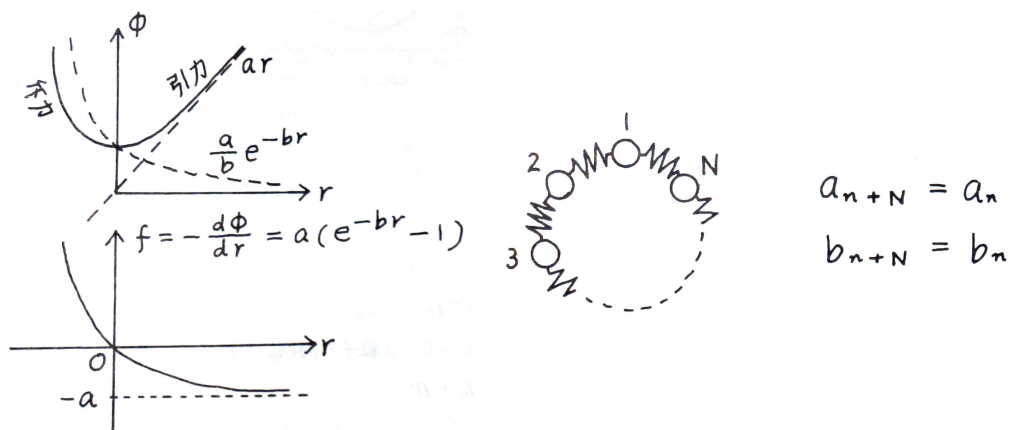 φ
引力
ar
斥力
a/b e^{-br}
r
f = - dφ/dr = a(e^{-br} - 1)
r
0
-a
1
2
N
3
a_{n+N} = a_n
b_{n+N} = b_n